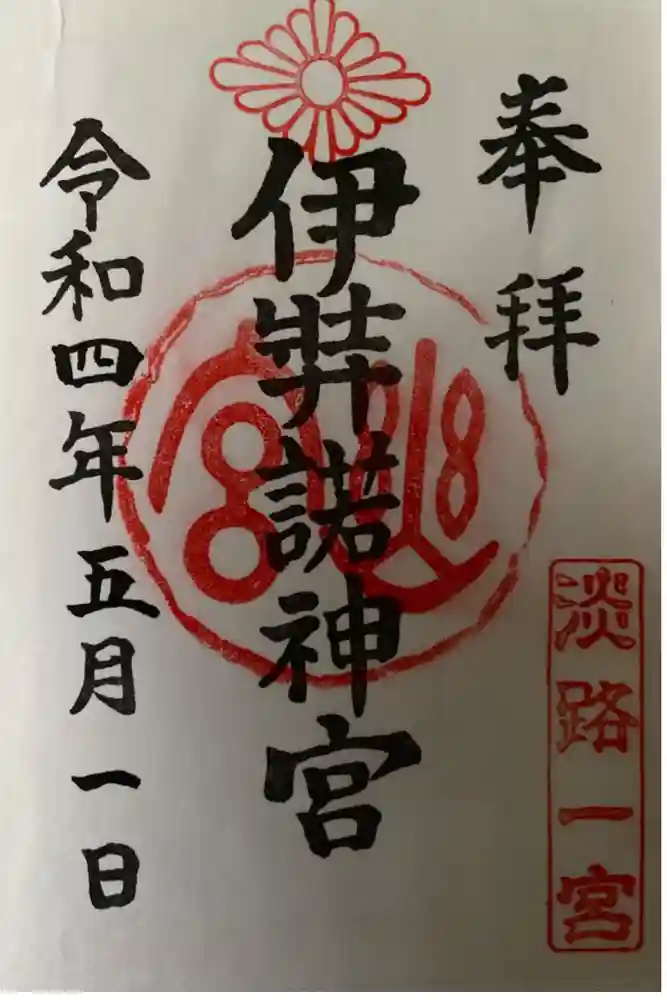 奉拝
淡路一宮
伊弉諾神宮
令和四年五月一日